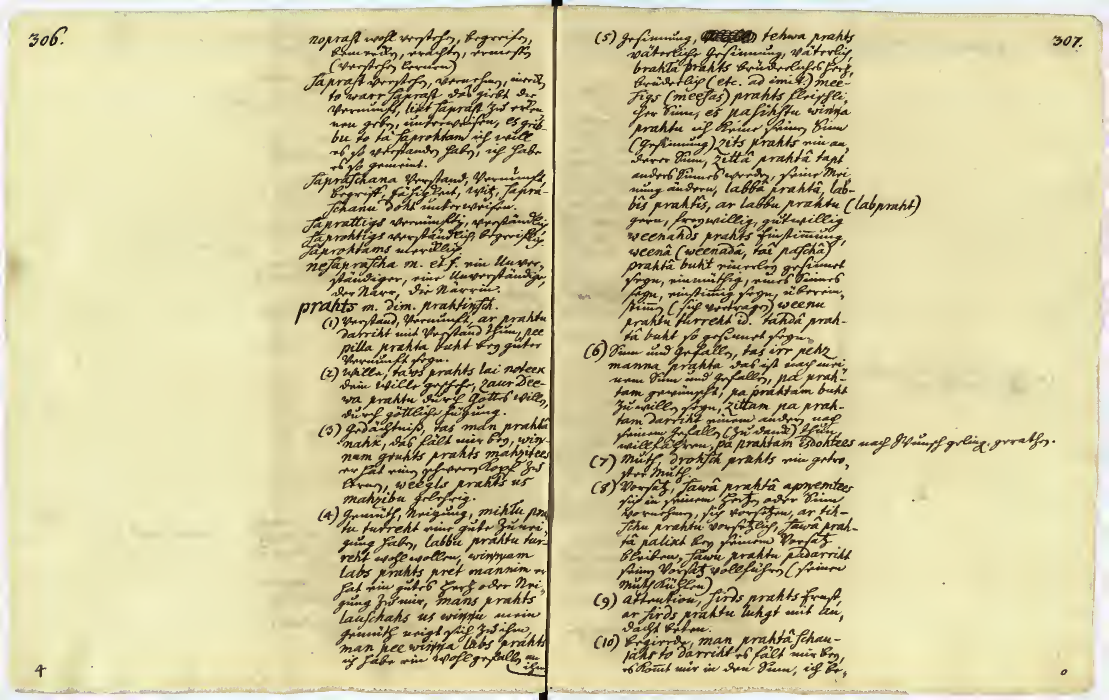 306.
noprast wohl verstehen, begreifen,
bemercken, erachten, ermessen
(verstehen lernen)
saprast verstehen, vernehmen, merck
to warr saprast das giebt die
Vernunft, likt saprast zu erken
nen geben, unterweisen, es grib-
bu to tà saprohtam ich will
es so verstanden haben, ich habe
es so gemeint.
Sapraschana Verstand, Vernunft
begriff, fähigkeit, witz, sapra-
schanu doht unterweisen.
saprattigs vernünftig, verständlich
saprohtigs verständlich, begreiflich
saprohtams mercklich
nesaprascha m. et f. ein Unver-
ständiger, eine Unverständige,
der Narr, die Närrin.
prahts m. dim. prahtinsch.
(1) Verstand, Vernunft, ar prahtu
darriht mit Verstand thun, pee
pilla prahta buht bey guter
Vernunft seyn.
(2) Wille, taws prahts lai noteek
dein Wille geschehe, zaur Dee-
wa prahtu durch Gottes willen,
durch göttliche fügung.
(3) Gedächtniß, tas man prahtà
nahk, das fält mir bey, win-
nam gruhts prahts mahzitees
er hat einen schweren Kopf zu
lernen, weegls prahts us
mahzibu gelehrig.
(4) Gemüth, Neigung, mihlu pra
tu turreht eine gute Zunei-
gung haben, labbu prahtu tur-
reht wohl wollen, winnam
labs prahts pret mannim er
hat ein gutes Hertz oder Nei-
gung zu mir, mans prahts
lauschahs us winnu mein
gemüth neigt sich zu ihm,
man pee winna labs prahts
ich habe ein wohlgefallen an
ihm
4
307.
(5) Gesinnung, tehwa prahts
väterliche Gesinnung, väterlich,
brahta prahts brüderliches Hertz,
brüderlich (etc. ad imit) mee-
sigs (meesas) prahts fleischli-
cher Sinn, es pasihstu winna
prahtu ich kenne seinen Sinn
(Gesinnung) zits prahts ein an-
derer Sinn, zittà prahtà tapt
anders Sinnes werden, seine Mei-
nung ändern, labbà prahtà, lab-
bis prahtis, ar labbu prahtu (labpraht)
gern, freywillig, gutwillig
weenahds prahts Einstimmung,
weenà (weenadà, tai paschà)
prahtà buht einerley gesinnet
seyn, einmüthig, eines Sinnes
seyn, einstimmig seyn, überein-
stimm (sich vertragen) weenu
prahtu turreht id. tahdà prah-
tà buht so gesinnet seyn.
(6) Sinn und Gefallen, tas irr pehz
manna prahta das ist nach mei-
nem Sinn und Gefallen, pa prah-
tam gewünscht, pa prahtam buht
zu willen seyn, zittam pa prah-
tam darriht einem andern nach
seinem Gefallen (zu danck) thun,
willfahren, pa prahtam isdohtees nach Wunsch geling, gerathen.
(7) Muth, drohsch prahts ein getro-
ster Muth
(8) Vorsatz, sawà prahtà apnemtees
sich in seinem Hertzen oder Sinn
vornehmen, sich vorsetzen, ar tih-
schu prahtu vorsetzlich, sawà prah-
tà palikt bey seinem Vorsatz
bleiben, sawu prahtu padarriht
seinen Vorsatz vollführen (seinen
Muth kühlen)
(9) attention, sirds prahts Ernst,
ar sirds prahtu luhgt mit An-
dacht beten.
(10) Begierde, man prahtà schau-
jahs to darriht es fält mir bey,
es komt mir in den Sinn, ich be-